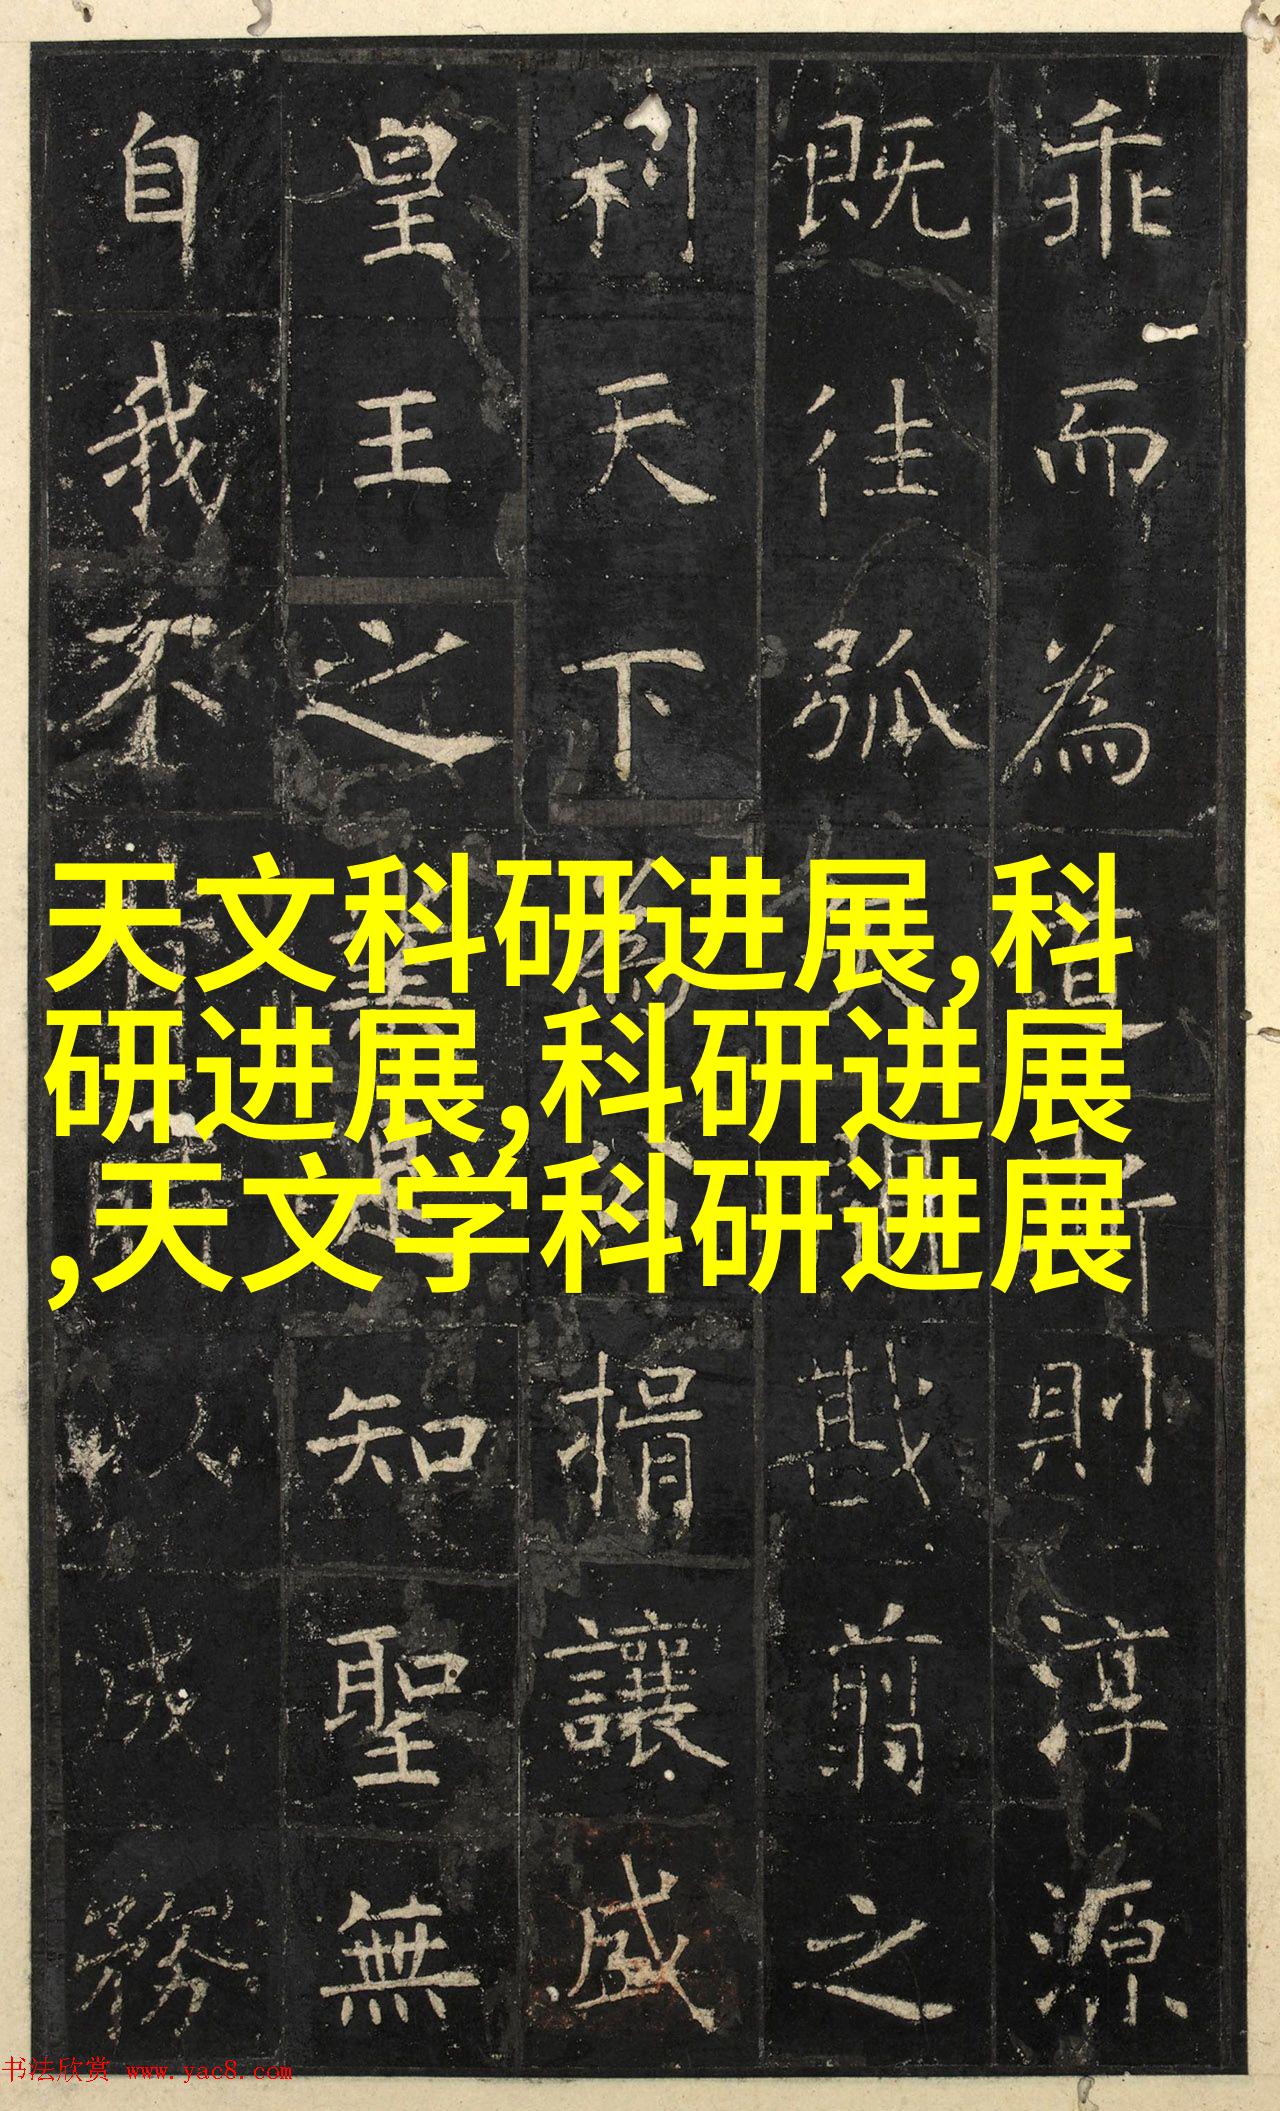 乖而為則淳源
既往弧戡翦之
利天下為捐讓盛
皇王之業是知聖無
自我不以成務
天文科研进展,科
研进展,科研进展
,天文学科研进展
书法欣赏 www.yac8.com